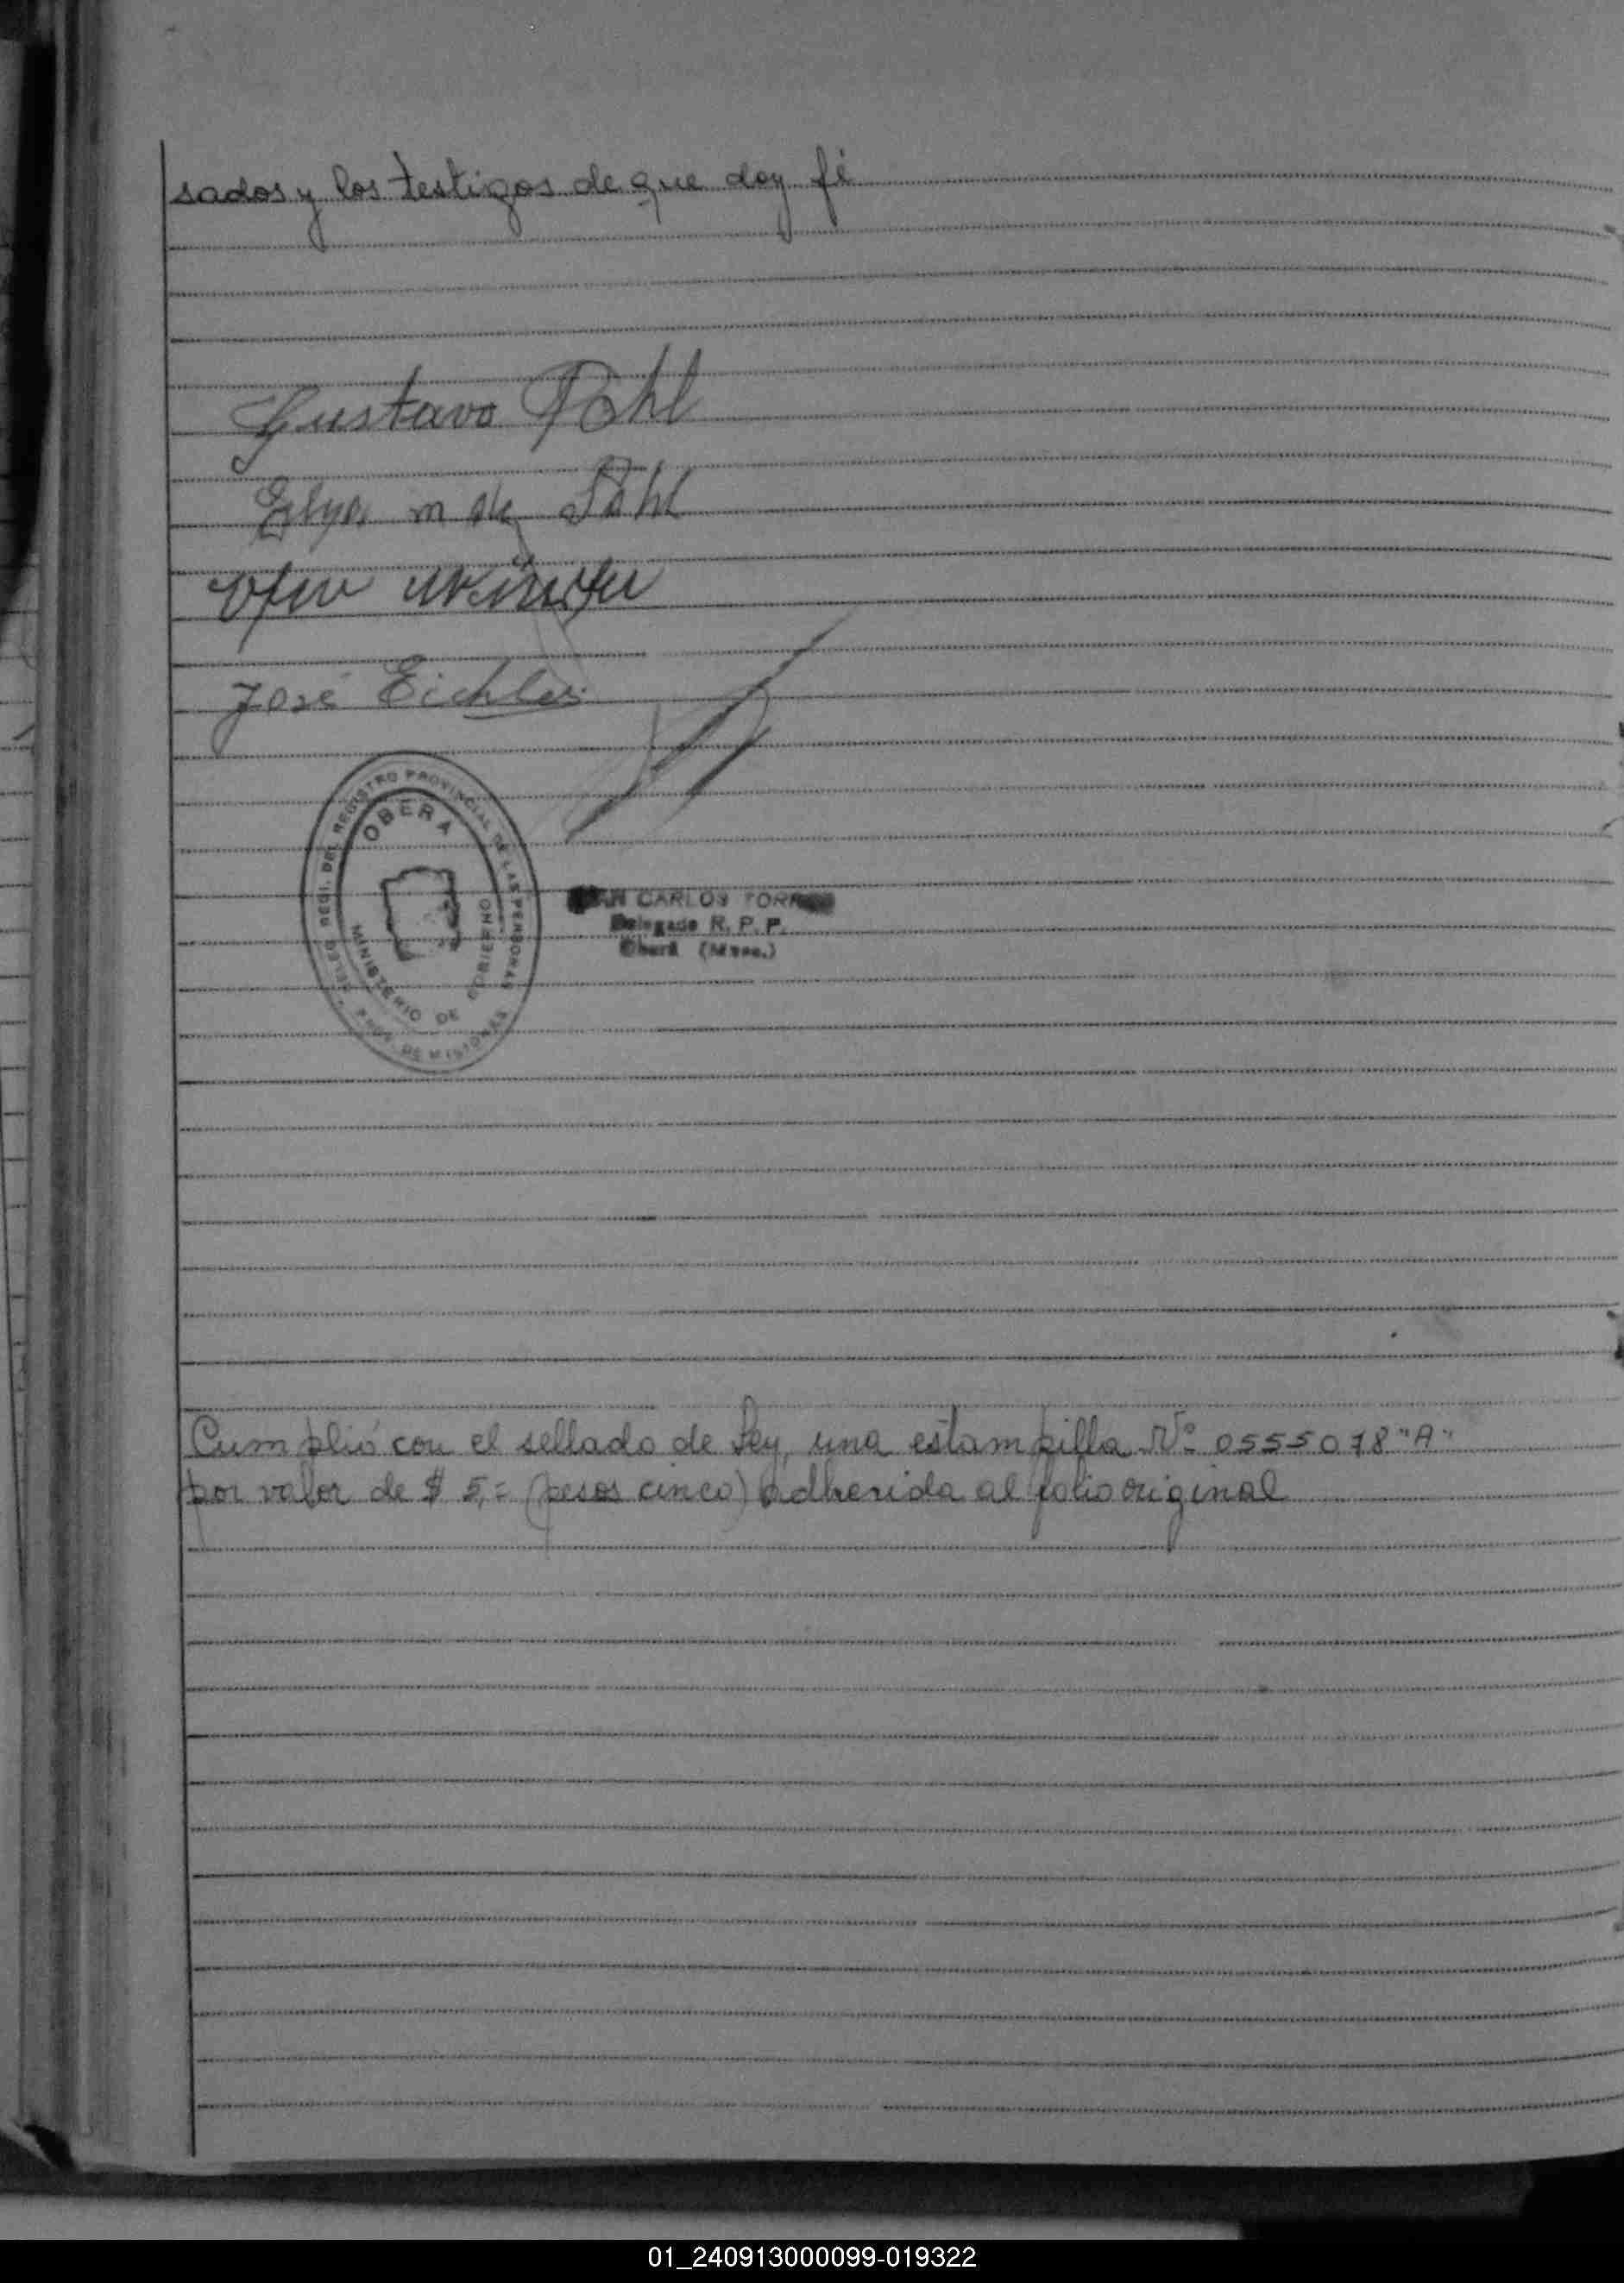 sados y los testigos de que doy fé
Gustavo Pohl
m de Pohl
José Eichler
DELEG. REGI. DEL REGISTRO PROVINCIAL DE LAS PERSONAS
OBERA
MINISTERIO DE GOBIERNO
PROV. DE MISIONES
CARLOS TORRES
Delegado R. P. P.
Oberá (Mnes.)
Cumplió con el sellado de Ley, una estampilla Nº 0555018 "A"
por valor de $ 5,= (pesos cinco) adherida al folio original
01_240913000099-019322